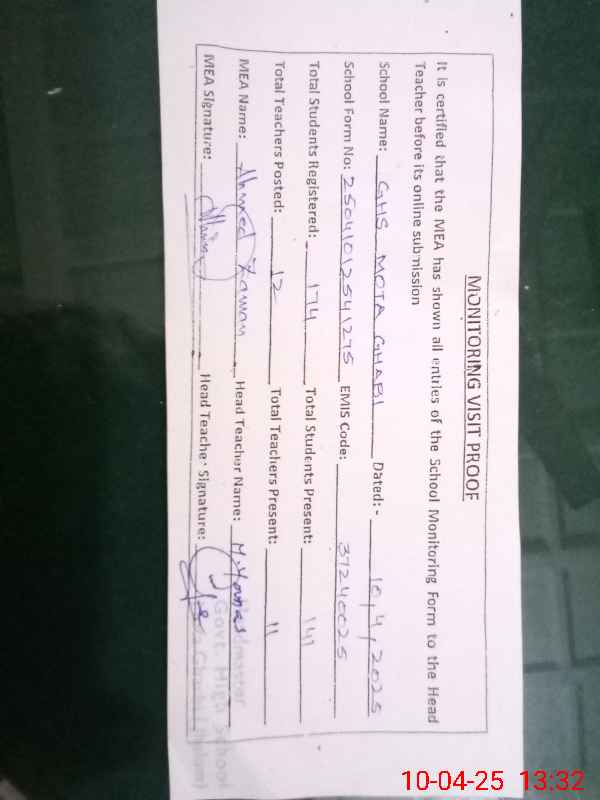 MONITORING VISIT PROOF
It is certified that the MEA has shown all entries of the School Monitoring Form to the Head
Teacher before its online submission
School Name: GHS MOTA GHABI Dated:- 10,4,2025
School Form No: 25041012541275 EMIS Code: 37240025
Total Students Registered: 174 Total Students Present: 141
Total Teachers Posted: 12 Total Teachers Present: 11
MEA Name: Ahmed Zaman Head Teacher Name: M. Younas
MEA Signature: Head Teacher Signature:
Govt. High School
10-04-25 13:32